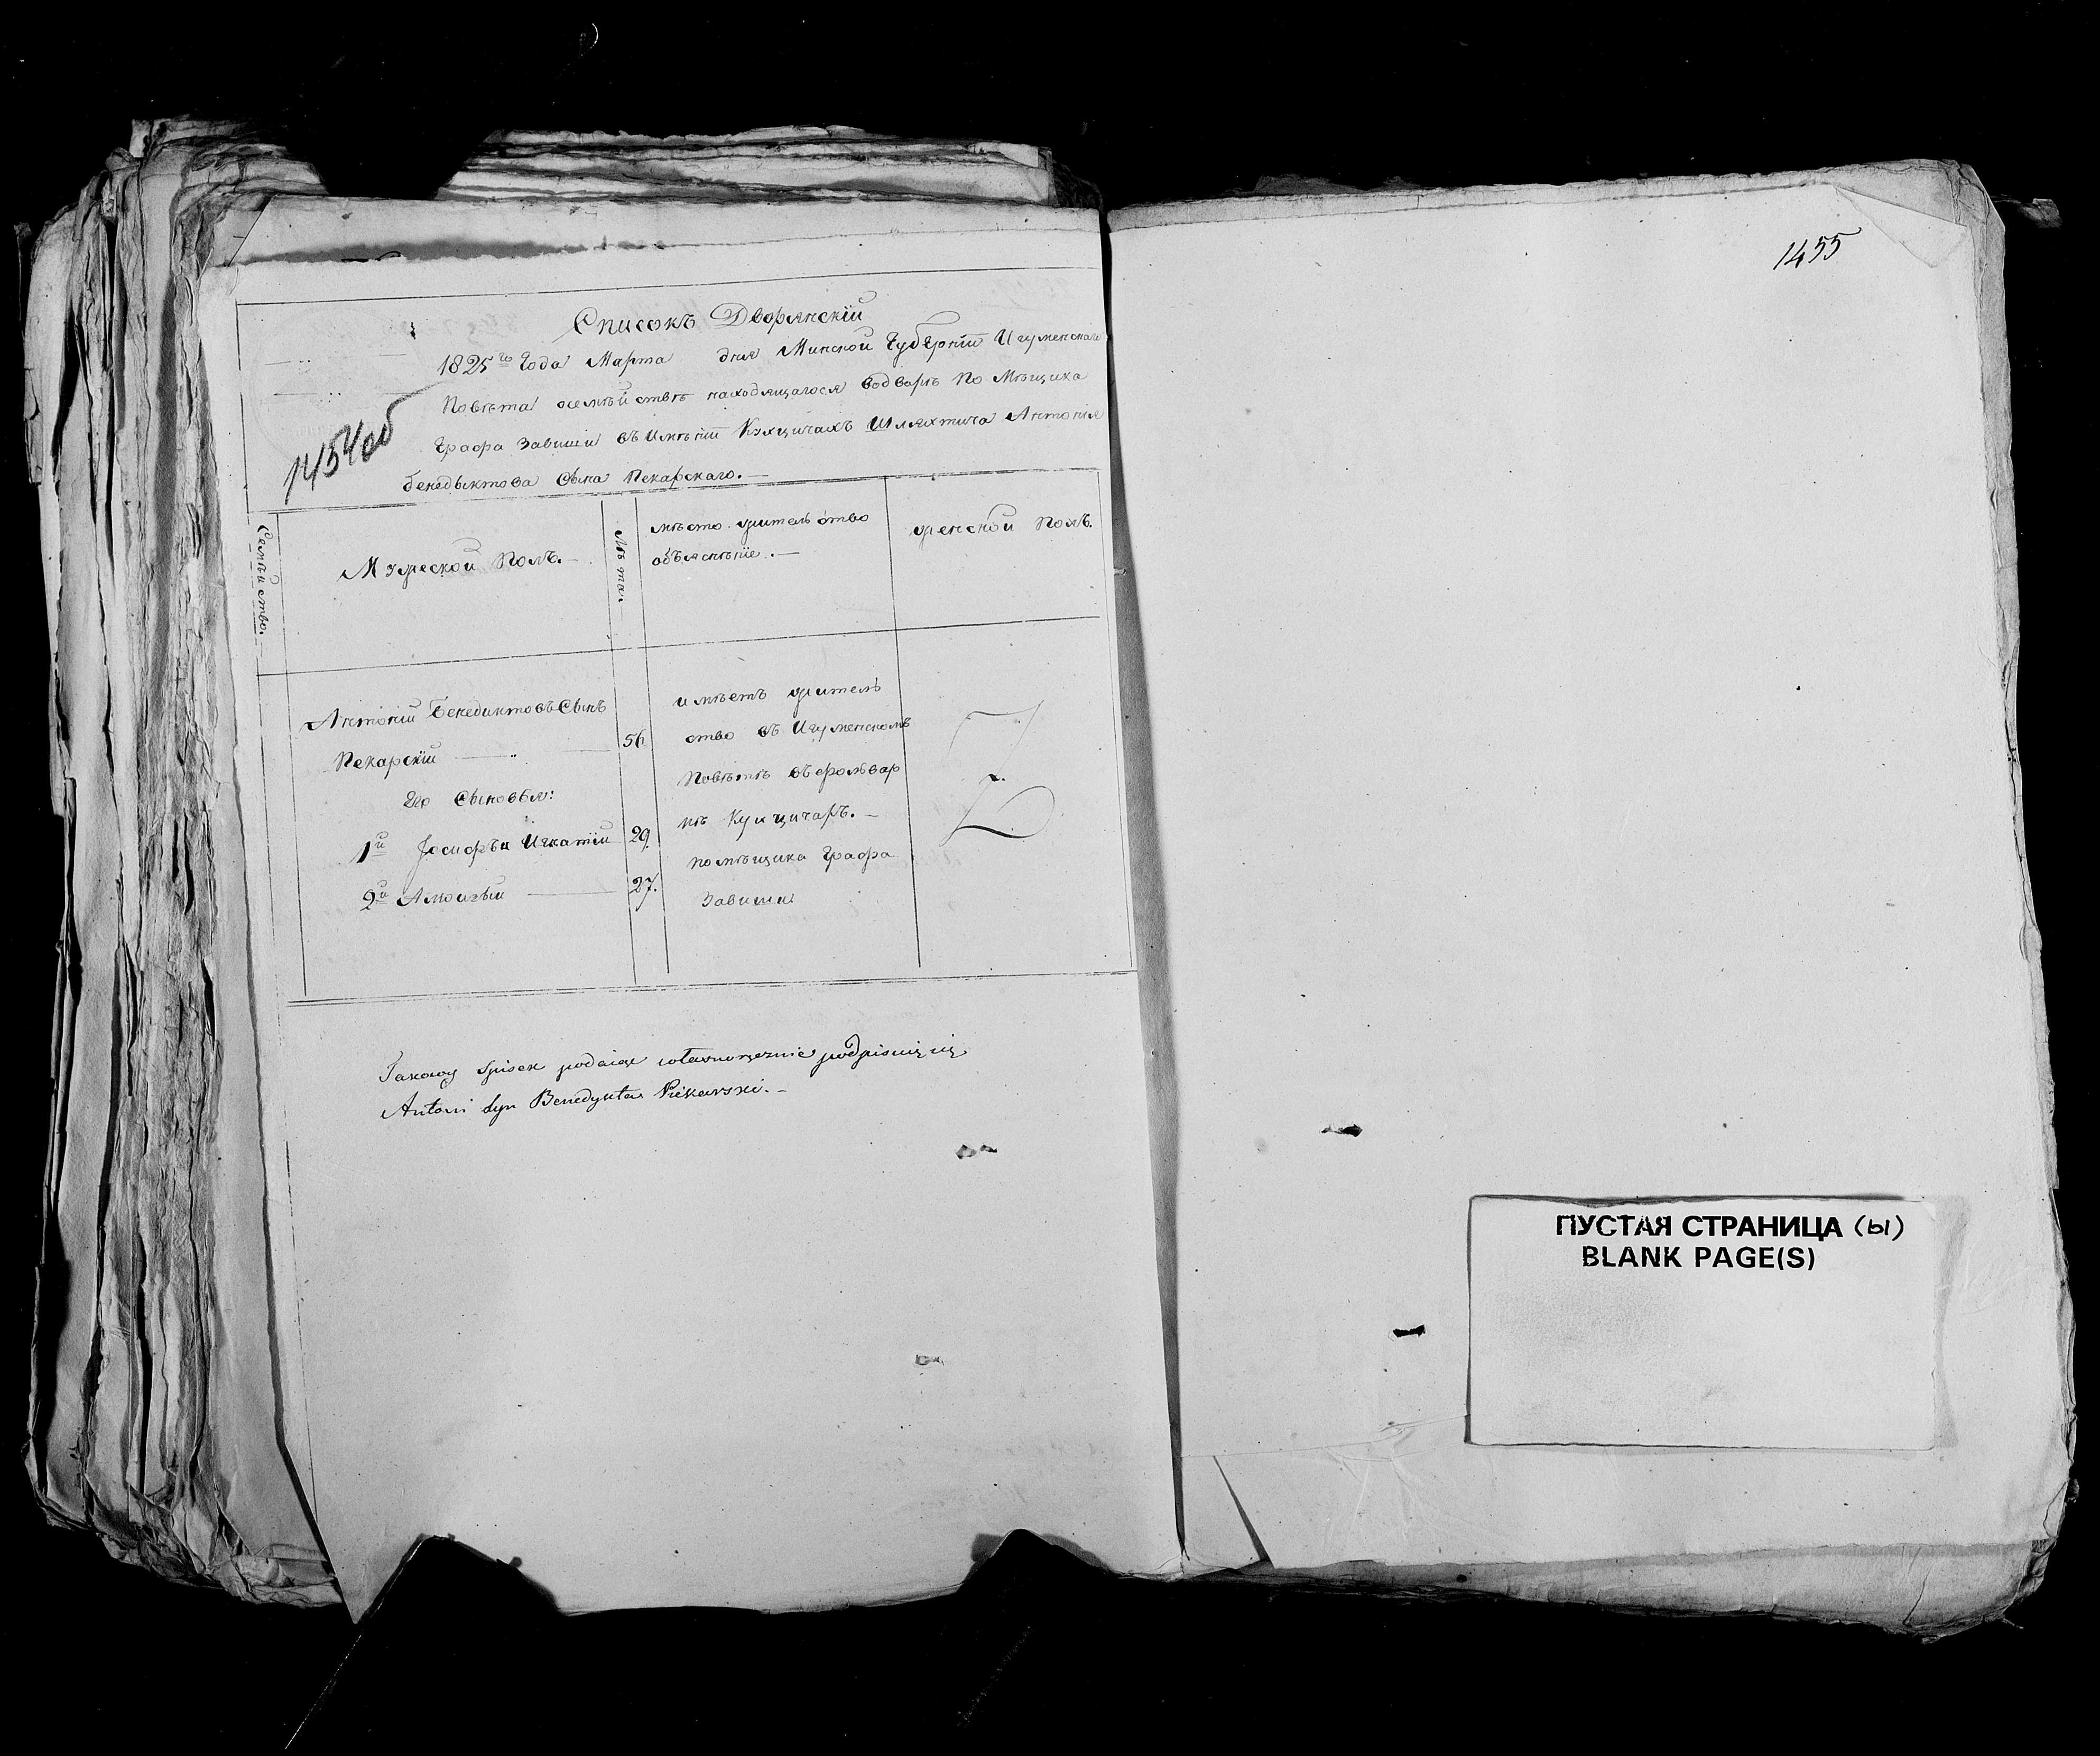 Списокъ Дворянскій
1825го Года Марта дня Минской Губерніи Игуменскаго
Повѣта осемѣйствѣ находящагося водворѣ Помѣщика
Графа Завиши въ Имѣніи Кухцичахъ Шляхтича Антонія
Бенедыктова Сына Пекарскаго.—
1454об
Семѣйство.
Мужеской Полъ.—
Лѣта.
мѣсто жительство
объяснѣніе.—
женской Полъ.
Антоній Бенедиктовъ Сынъ
Пекарскій — 56
Его Сыновья:
1й Іосифъ и Игнатій 29
2й Алюизый — 27.
имѣетъ житель
ство въ Игуменскомъ
Повѣтѣ въ фольвар
кѣ Кухцичахъ.—
помѣщика Графа
Завиши
Takowy Spisek podaiąc własnoręcznie podpisuię się
Antoni syn Benedykta Piekarski.—
1455
ПУСТАЯ СТРАНИЦА (Ы)
BLANK PAGE(S)